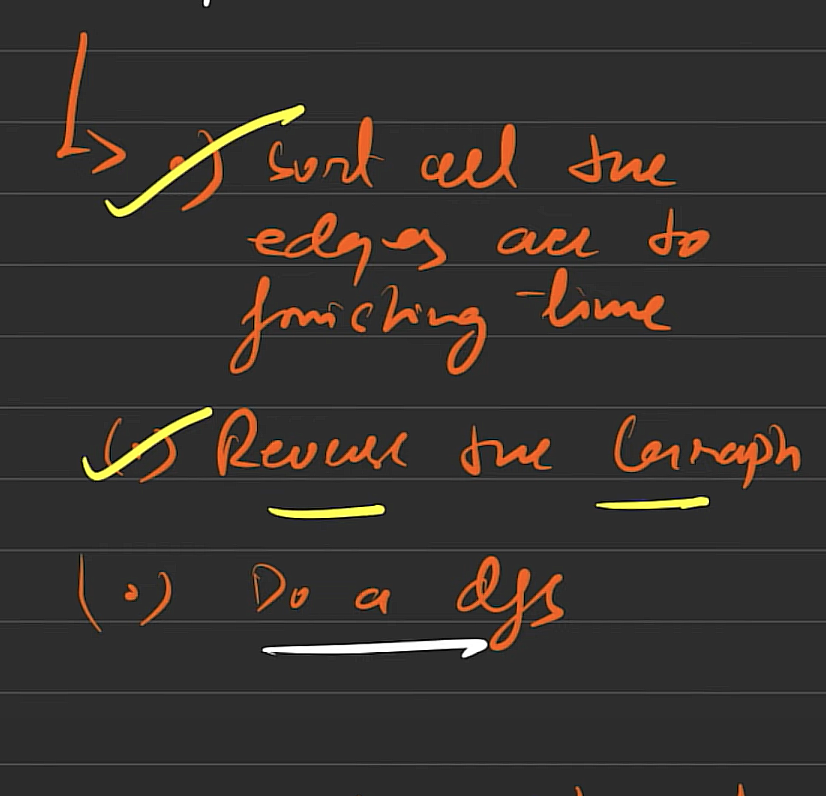 .) Sort all the
edges acc to
finishing time
(.) Reverse the Graph
(.) Do a dfs